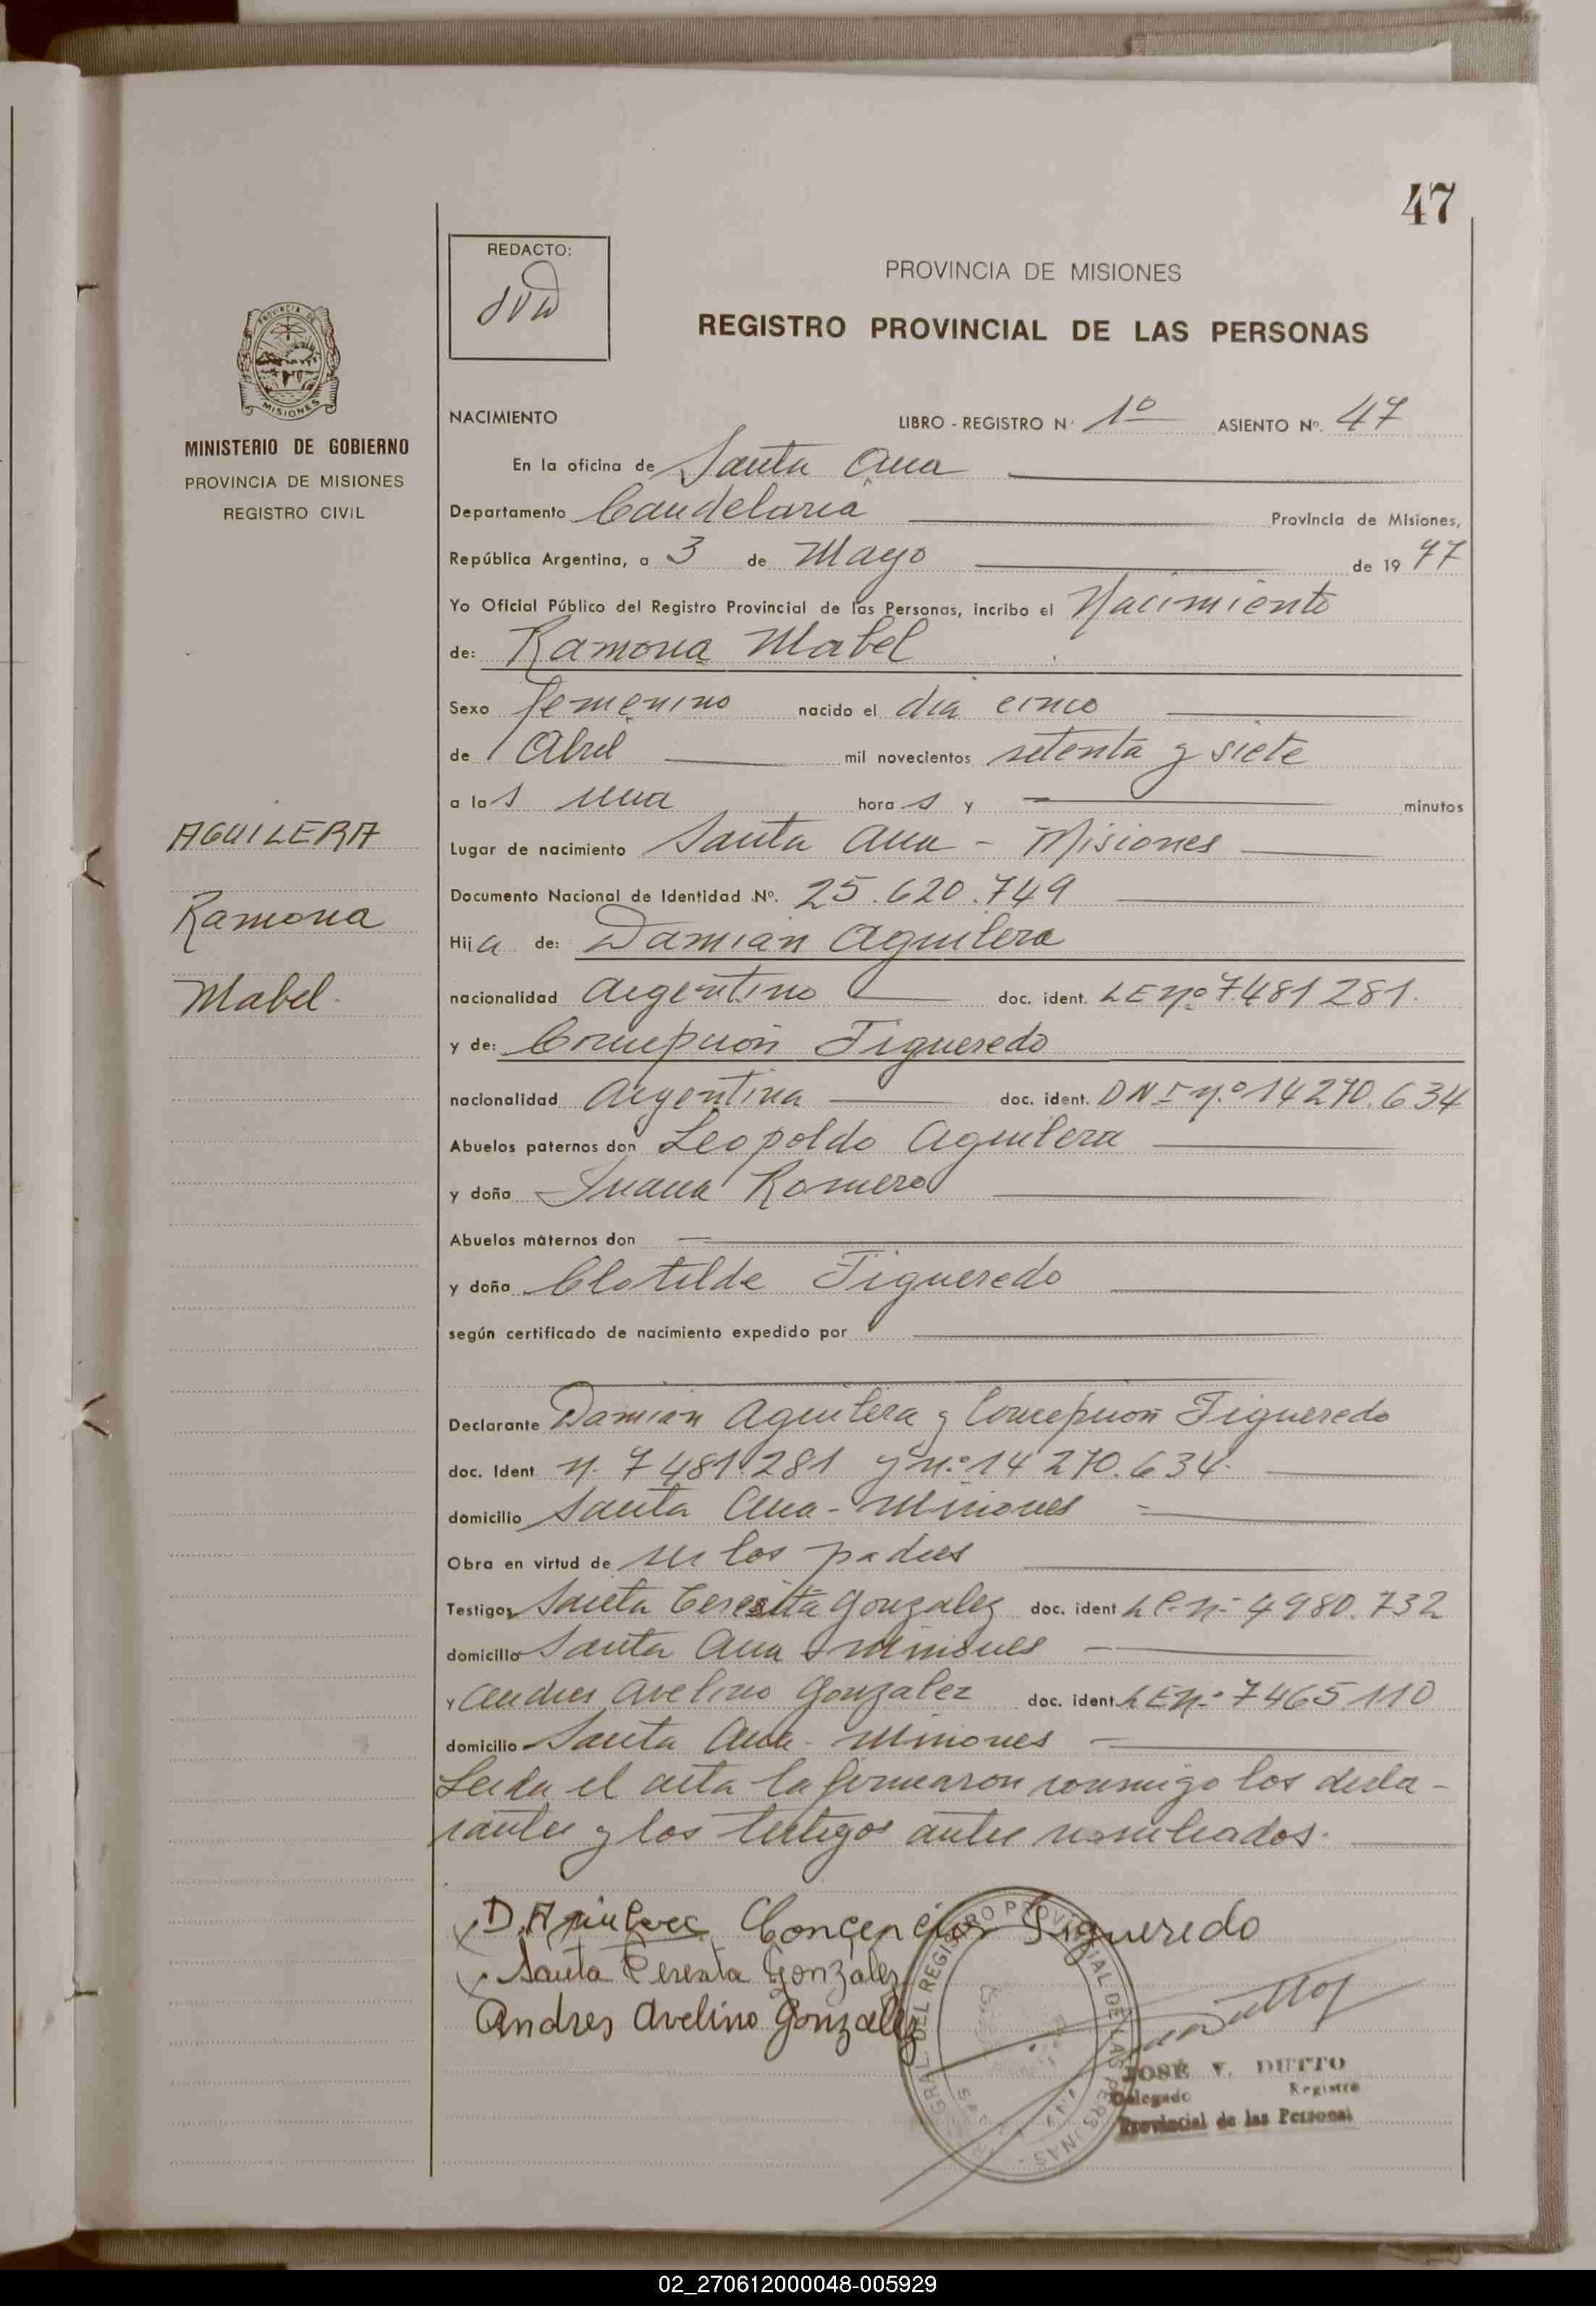 47
REDACTO:
PROVINCIA DE MISIONES
REGISTRO PROVINCIAL DE LAS PERSONAS
PROVINCIA DE
MISIONES
MINISTERIO DE GOBIERNO
PROVINCIA DE MISIONES
REGISTRO CIVIL
AGUILERA
Ramona
Mabel
NACIMIENTO LIBRO - REGISTRO N° 1º ASIENTO Nº. 47
En la oficina de Santa Ana
Departamento Candelaria Provincia de Misiones,
República Argentina, a 3 de Mayo de 1977
Yo Oficial Público del Registro Provincial de las Personas, incribo el Nacimiento
de: Ramona Mabel
Sexo femenino nacido el dia cinco
de Abril mil novecientos setenta y siete
a las una horas y minutos
Lugar de nacimiento Santa Ana - Misiones
Documento Nacional de Identidad Nº. 25.620.749
Hija de: Damian Aguilera
nacionalidad Argentino doc. ident. LE nº 7.481281.
y de: Concepción Figueredo
nacionalidad Argentina doc. ident. DNI n.º 14270.634
Abuelos paternos don Leopoldo Aguilera
y doña Juana Romero
Abuelos maternos don
y doña Clotilde Figueredo
según certificado de nacimiento expedido por
Declarante Damian Aguilera y Concepción Figueredo
doc. Ident n. 7481.281 y n.º 14270.634.
domicilio Santa Ana - Misiones
Obra en virtud de ser los padres
Testigos Santa Teresita Gonzalez doc. ident LC. n- 4980.732
domicilio Santa Ana - Misiones
y Andres Avelino Gonzalez doc. ident LE n.º 7465.110
domicilio Santa Ana - Misiones
Leida el acta la firmaron conmigo los decla-
rantes y los testigos antes nombrados.
D. Aguilera Concepción Figueredo
Santa Teresita Gonzalez
Andres Avelino Gonzalez
GRAL. DEL REGISTRO PROVINCIAL DE LAS PERSONAS
JOSÉ V. DUTTO
Delegado Registro
Provincial de las Personas
02_270612000048-005929